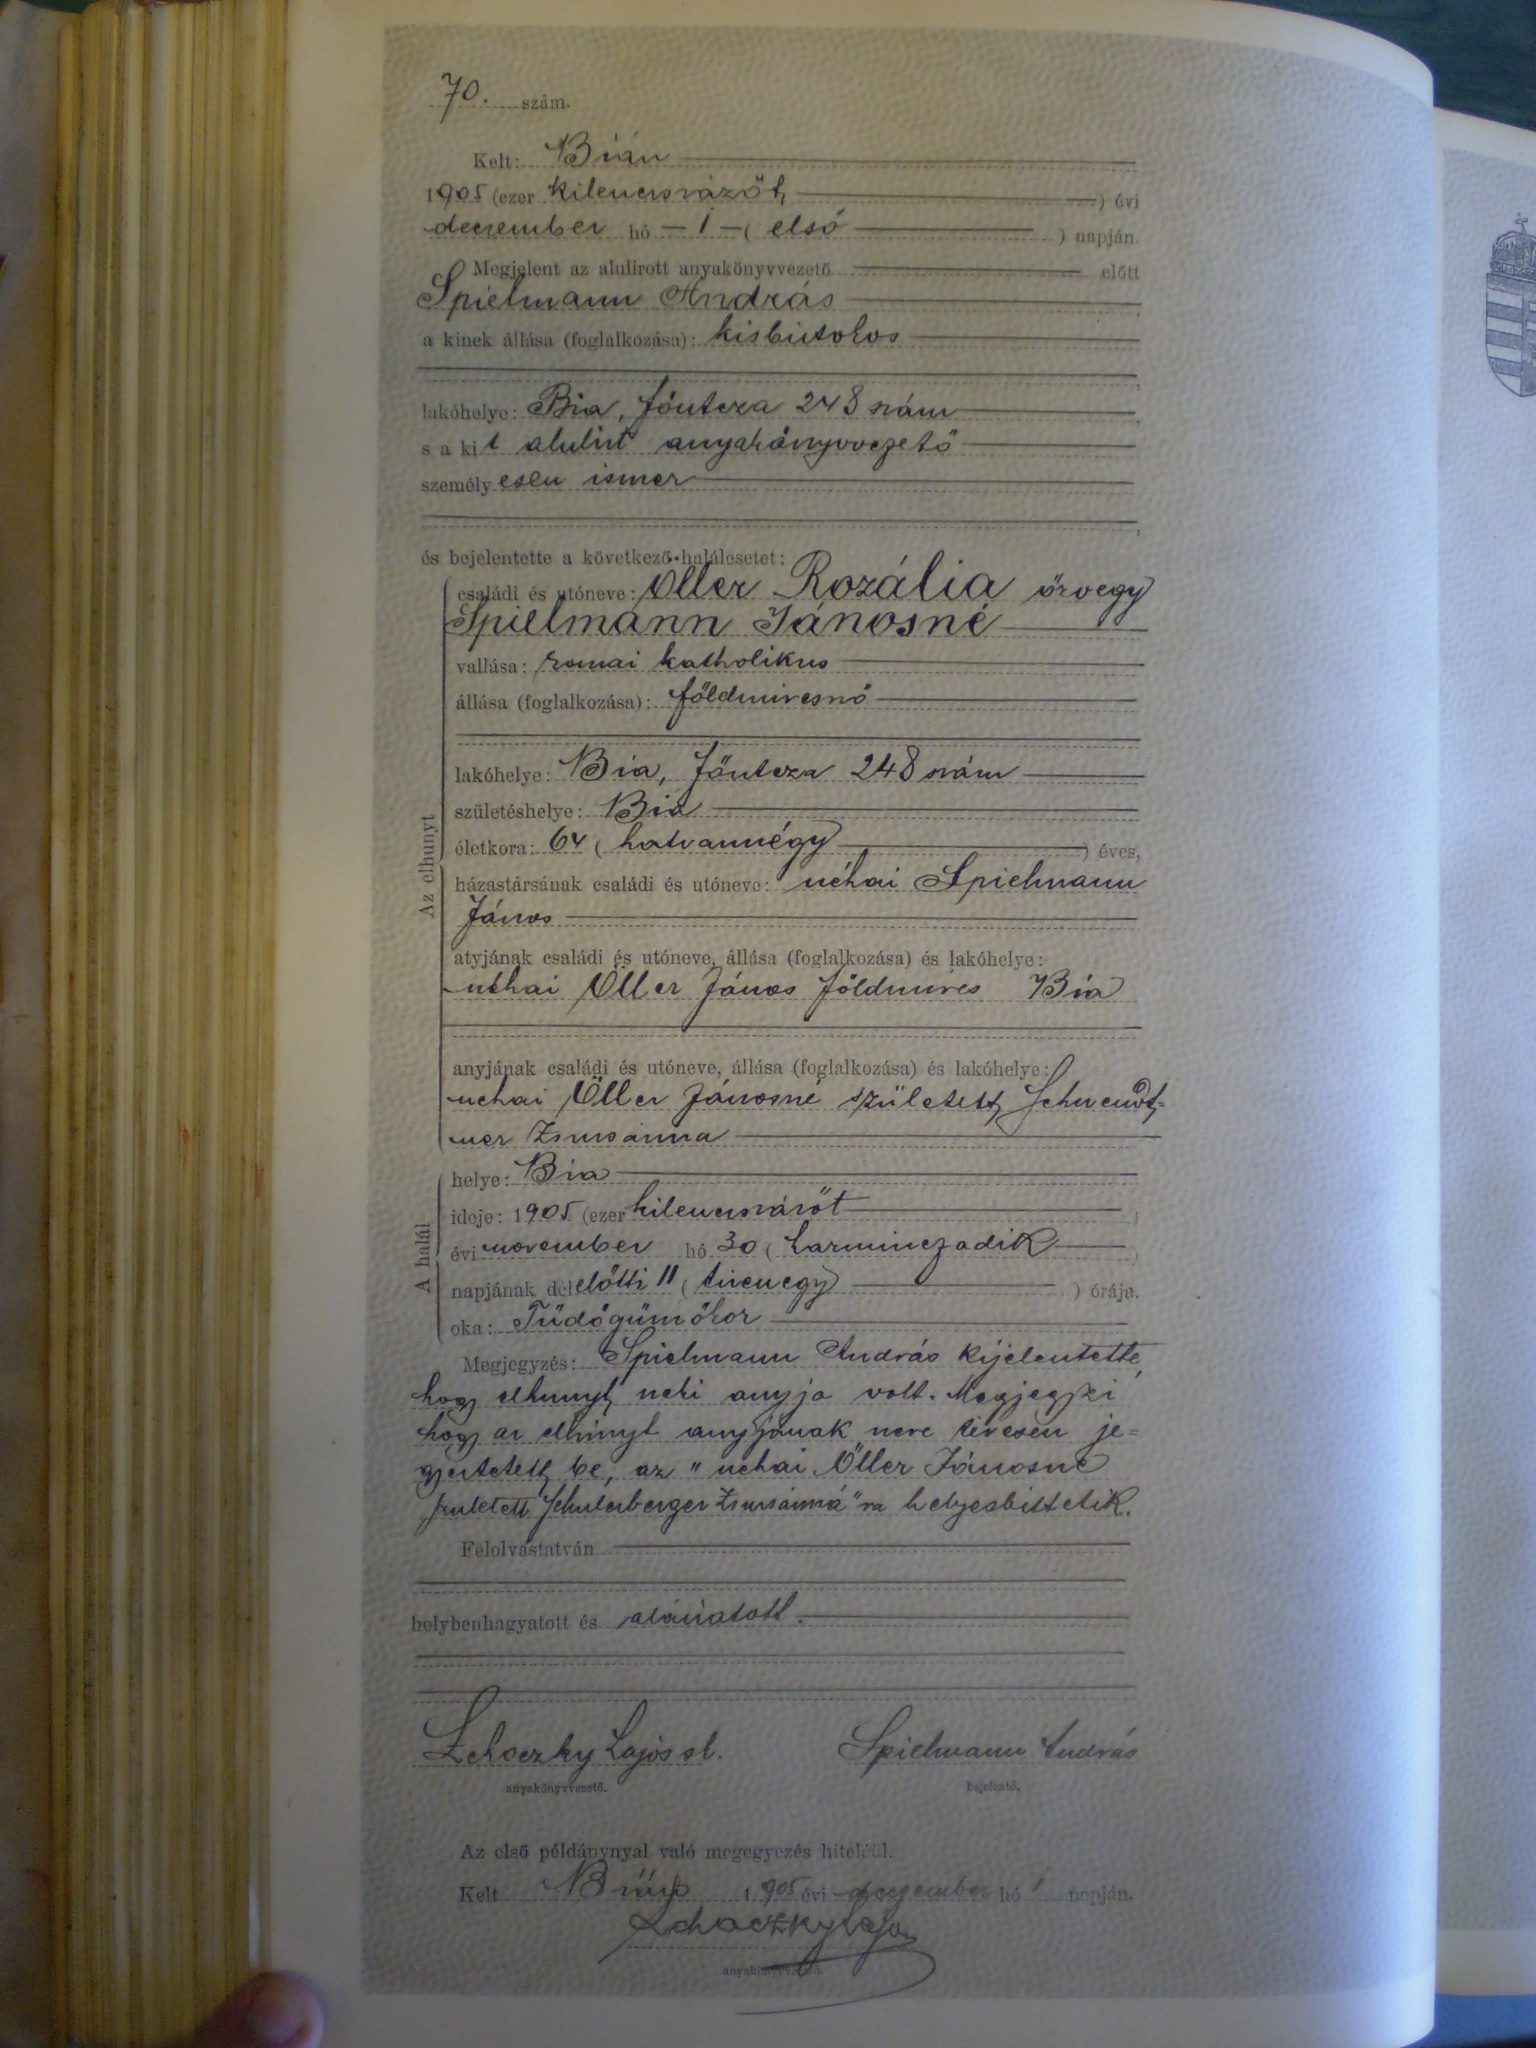 70. szám.
Kelt: Bián
1905 (ezer kilenczszázöt) évi
deczember hó 1 (első) napján.
Megjelent az alulirott anyakönyvvezető előtt
Spielmann András
a kinek állása (foglalkozása): kisbirtokos
lakóhelye: Bia, főutcza 248 szám
s a kit alulirt anyakönyvvezető
személyesen ismer
és bejelentette a következő halálesetet:
családi és utóneve: Öller Rozália özvegy
Spielmann Jánosné
vallása: romai katholikus
állása (foglalkozása): földmivesnő
lakóhelye: Bia, főutcza 248 szám
születéshelye: Bia
életkora: 64 (hatvannégy) éves,
házastársának családi és utóneve: néhai Spielmann
János
Az elhunyt
atyjának családi és utóneve, állása (foglalkozása) és lakóhelye:
néhai Öller János földmives Bia
anyjának családi és utóneve, állása (foglalkozása) és lakóhelye:
nehai Öller Jánosné született
ner Zsuzsánna
helye: Bia
ideje: 1905 (ezer kilenczszázöt)
évi november hó 30 (harminczadik)
A halál
napjának délelőtti 11 (tizenegy) órája.
oka: Tüdőgümőkor
Megjegyzés: Spielmann András kijelentette,
hogy elhunyt neki anyja volt. Megjegyzi
hogy az elhúnyt anyjának neve tévesen je=
gyeztetett be, az "nehai Öller Jánosné
született Zsuzsánná"ra helyesbittetik.
Felolvastatván
helybenhagyatott és aláiratott.
Lajos Spielmann András
anyakönyvvezető. bejelentő.
Az első példánynyal való megegyezés hiteléül.
Kelt Bián 1905 évi deczember hó 1 napján.
anyakönyvvezető.